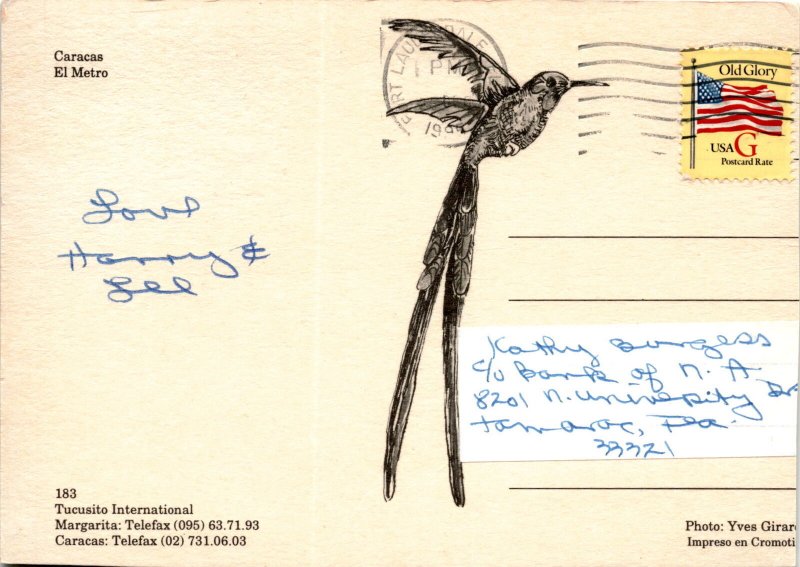 Caracas
El Metro
FORT LAUDERDALE
PM
Old Glory
USA G
Postcard Rate
Love
Harry &
Lee
Kathy Burgess
c/o Bank of N. A.
8201 N. University Dr
Tamarac, Fla.
33321
183
Tucusito International
Margarita: Telefax (095) 63.71.93
Caracas: Telefax (02) 731.06.03
Photo: Yves Girar
Impreso en Cromoti